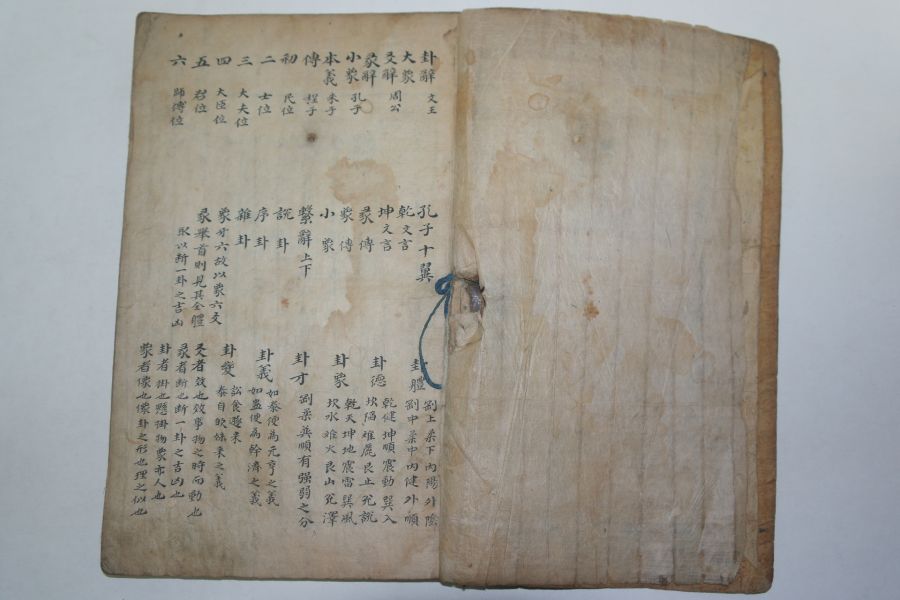 卦辭 文王
大象
爻辭 周公
彖辭
小象 孔子
本義 朱子
傳 程子
初 民位
二 士位
三 大夫位
四 大臣位
五 君位
六 師傅位
孔子十翼
乾文言
坤文言
彖傳
象傳
小象
繫辭上下
說卦
序卦
雜卦
象牙六故以象六爻
彖擧首則見其全體
以斷一卦之吉凶
卦體 剛上柔下內陽外陰
剛中柔中內健外順
卦德 乾健坤順震動巽入
坎陷離麗艮止兌說
卦象 乾天坤地震雷巽風
坎水離火艮山兌澤
卦才 剛柔巽順有强弱之分
卦義 如泰便為元亨之義
如蠱便為幹濟之義
卦變 訟食遯來
泰自歸妹來之義
爻者效也效事物之時而動也
彖者斷也斷一卦之吉凶也
卦者掛也懸掛物象示人也
象者像也像卦之形也理之似也